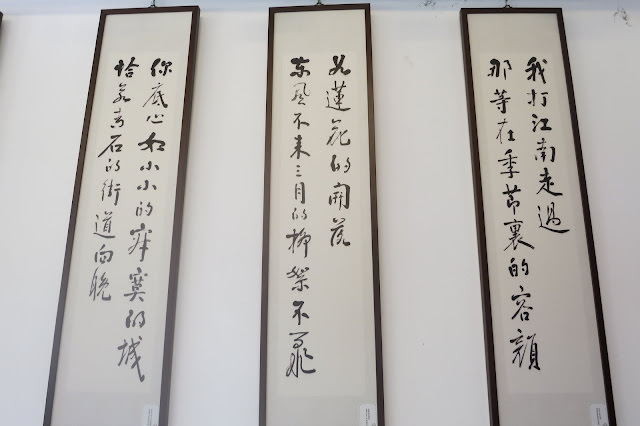 我打江南走過
那等在季節裏的容顏
如蓮花的開落
東風不來三月的柳絮不飛
你底心如小小的寂寞的城
恰若青石的街道向晚